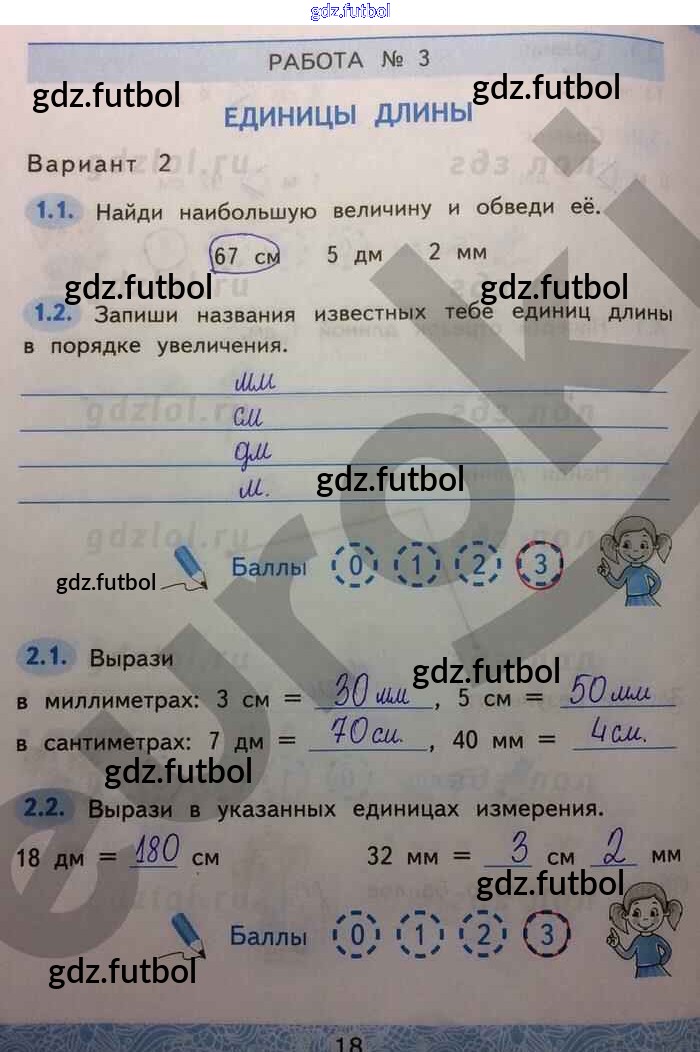 gdz.futbol
РАБОТА № 3
gdz.futbol
gdz.futbol
ЕДИНИЦЫ ДЛИНЫ
Вариант 2
1.1. Найди наибольшую величину и обведи её.
67 см 5 дм 2 мм
gdz.futbol
gdz.futbol
1.2. Запиши названия известных тебе единиц длины
в порядке увеличения.
мм
см
дм
м.
gdz.futbol
Баллы 0 1 2 3
gdz.futbol
2.1. Вырази
gdz.futbol
в миллиметрах: 3 см = 30 мм, 5 см = 50 мм
в сантиметрах: 7 дм = 70 см., 40 мм = 4 см.
gdz.futbol
2.2. Вырази в указанных единицах измерения.
18 дм = 180 см 32 мм = 3 см 2 мм
gdz.futbol
Баллы 0 1 2 3
gdz.futbol
18
euroki
gdzlol.ru
gdzlol.ru
gdzlol.ru